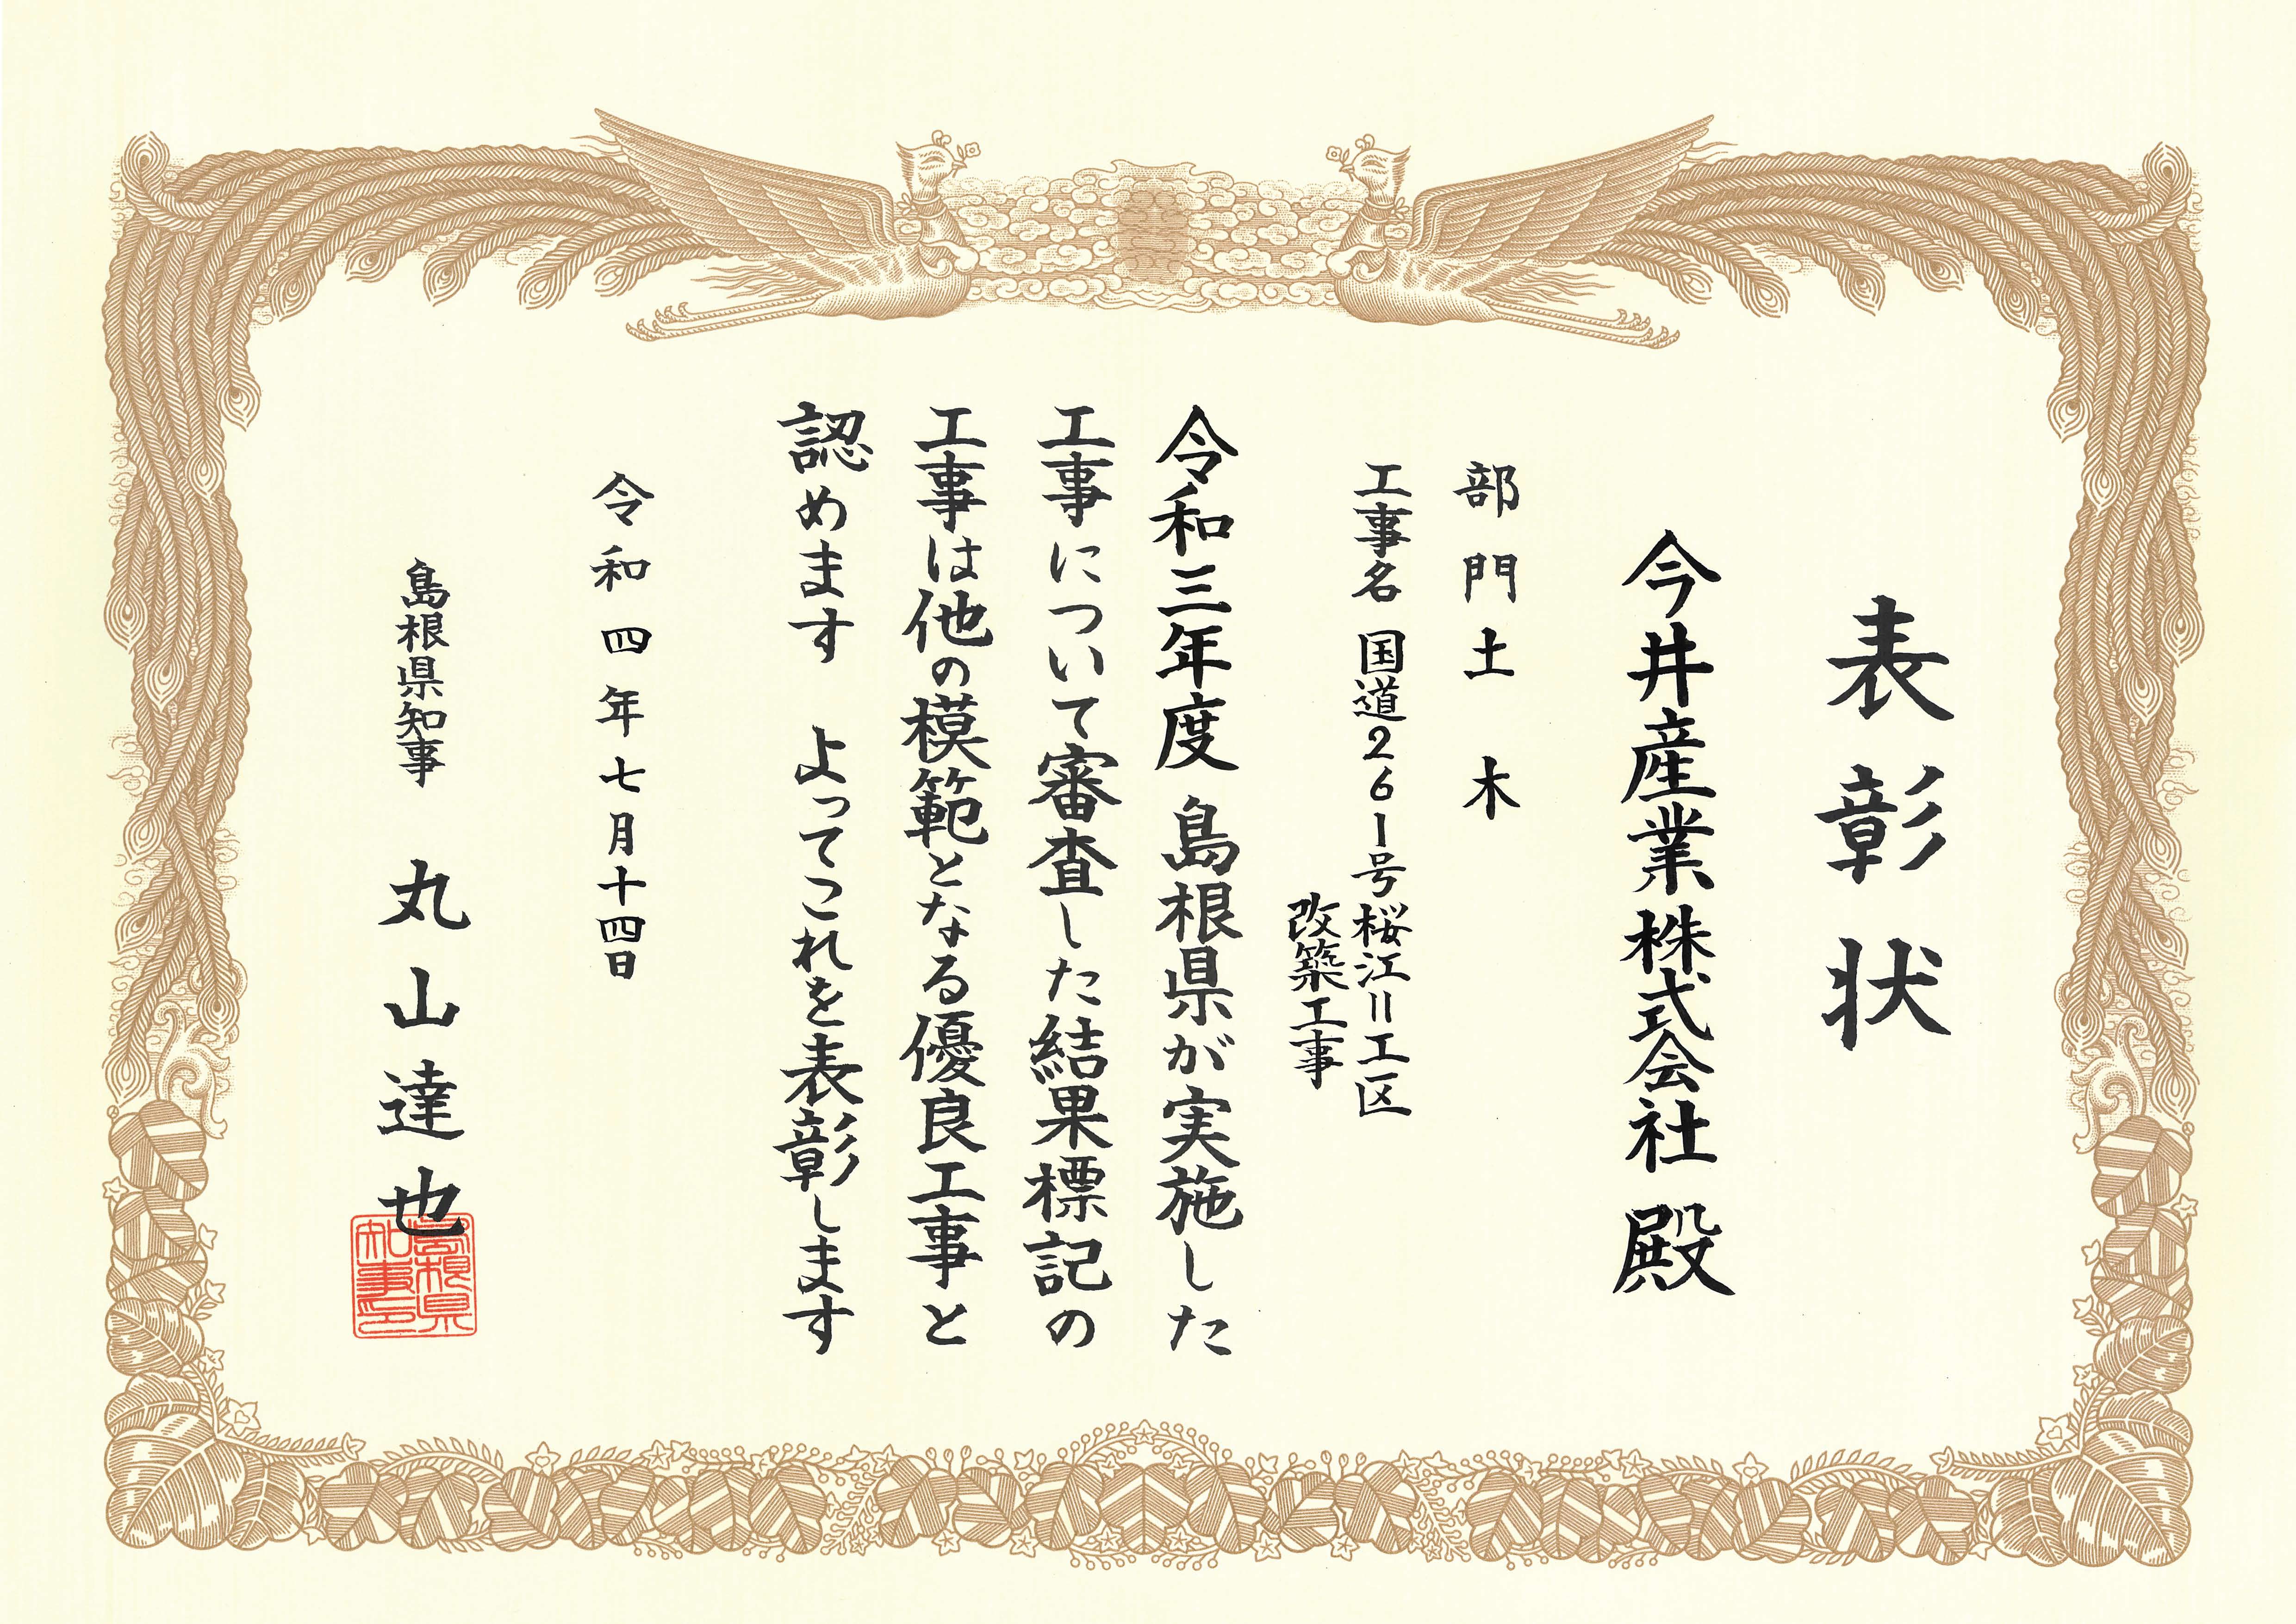 表彰状
今井産業株式会社 殿
部門 土木
工事名 国道261号桜江II工区
改築工事
令和三年度 島根県が実施した
工事について審査した結果標記の
工事は他の模範となる優良工事と
認めます よってこれを表彰します
令和四年七月十四日
島根県知事 丸山達也
島根県知事之印